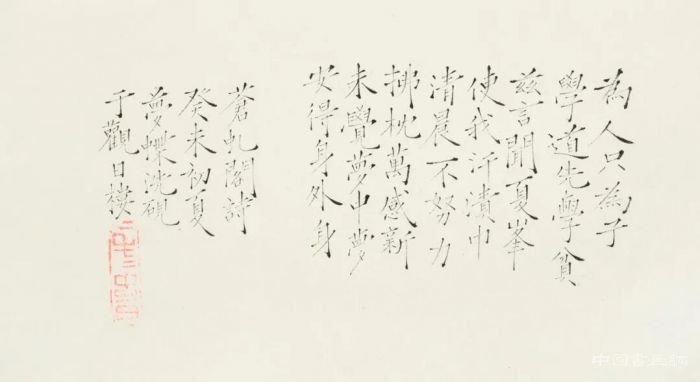 為人只為子
學道先學貧
茲言聞夏峯
使我汗漬巾
清晨不努力
拂枕萬感新
未覺夢中夢
安得身外身
蒼虬閣詩
癸未初夏
夢蝶沈硯
于觀日樓
中国書画網